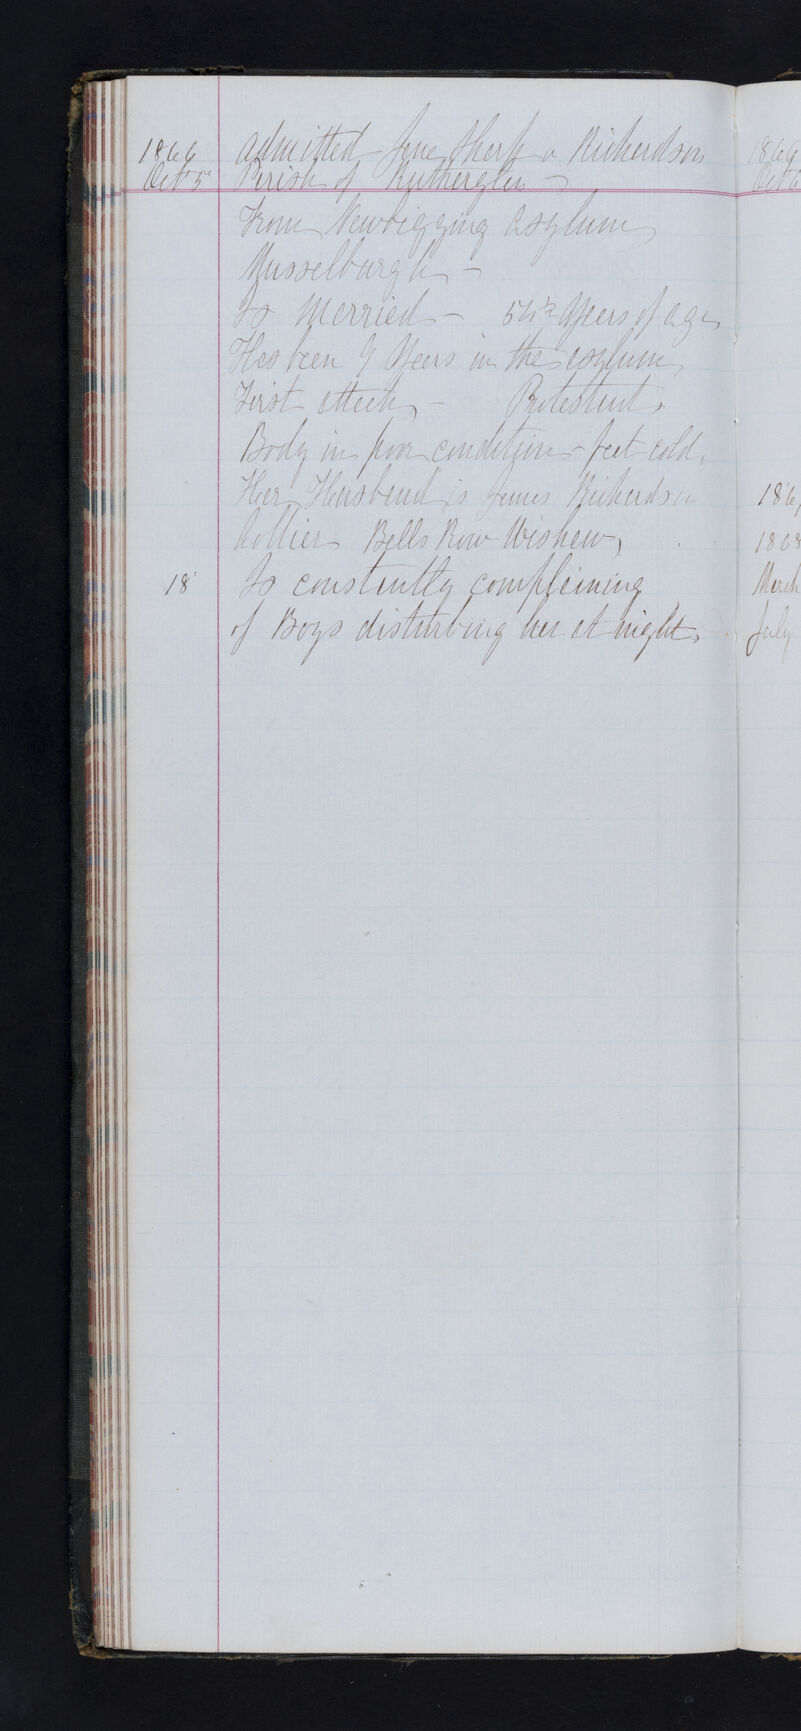 1866 admitted Jane Sharp or Richardson
Oct 5th Parish of Rutherglen -
From Newbigging Asylum
Musselburgh -
Is Married - 54½ Years of age
Has been 9 Years in the asylum
First attack, - Protestant,
Body in poor condition - feet cold,
Her Husband is James Richardson
Collier Bells Row Wishaw,
18 Is constantly complaining
of Boys disturbing her at night,
1866
Oct
186
1868
March
July